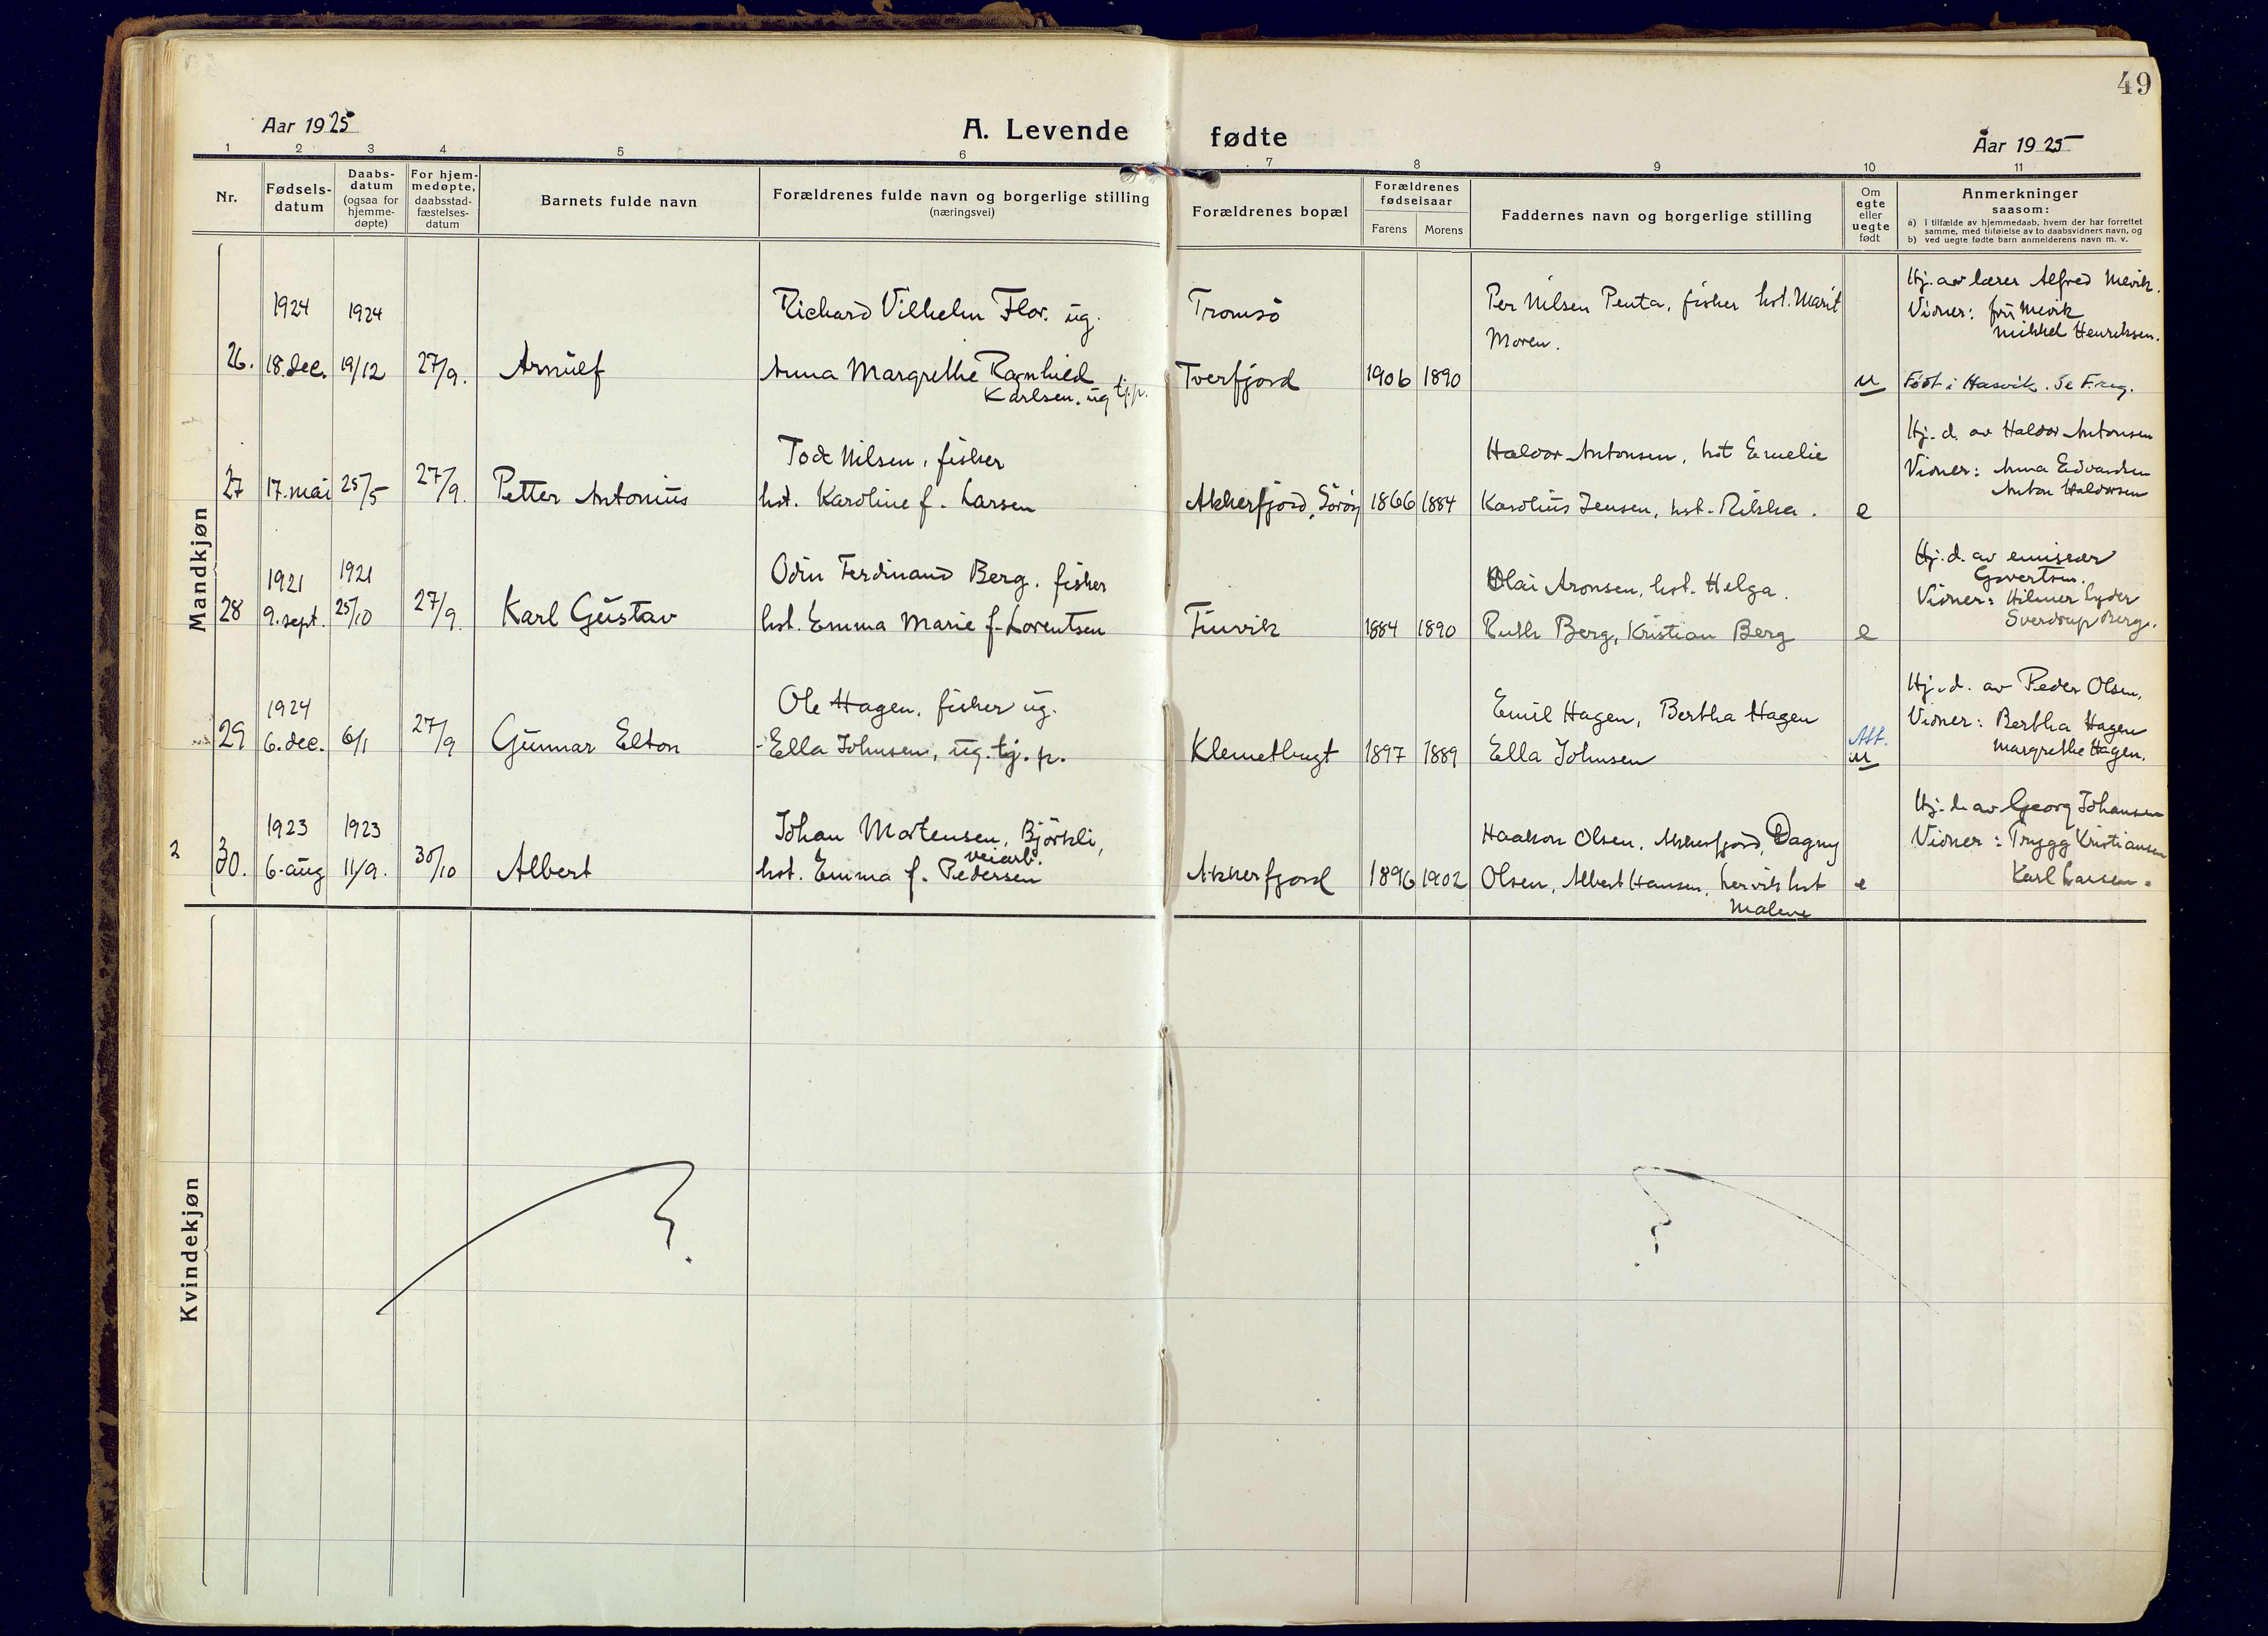 49
Aar 1925
A. Levende fødte
Aar 1925
1 2 3 4 5 6 7 8 9 10 11
Nr.
Fødsels-
datum
Daabs-
datum
(ogsaa for
hjemme-
døpte)
For hjem-
medøpte,
daabsstad-
fæstelses-
datum
Barnets fulde navn
Forældrenes fulde navn og borgerlige stilling
(næringsvei)
Forældrenes bopæl
Forældrenes
fødselsaar
Farens Morens
Faddernes navn og borgerlige stilling
Om
egte
eller
uegte
født
Anmerkninger
saasom:
a) i tilfælde av hjemmedaab, hvem der har forrettet
samme, med tilføielse av to daabsvidners navn, og
b) ved uegte fødte barn anmelderens navn m. v.
Mandkjøn
1924 1924 Richard Vilhelm Flor. ug. Tromsö Per Nilsen Penta, fisher hst. Marit
Moren.
26. 18. dec. 19/12 27/9. Arnulf Anna Margrethe Ragnhild
Karlsen. ug tj.p. Tverfjord 1906 1890 u
Hj. av lærer Alfred Mevik.
Vidner: fru Mevik
Mikkel Henriksen.
Föst i Hasvik. Se F.reg.
Tode Nilsen, fisker Haldor Antonsen, hst Emelie
27 17. mai 25/5 27/9. Petter Antonius hst. Karoline f. Larsen Akkerfjord, Söröy 1866 1884 Karolius Jensen, hst. Rikka. e
Hj. d. av Haldor Antonsen
Vidner: Anna Edvardsen
Anton Haldorsen
1921 1921 Odin Ferdinand Berg. fisher Olai Aronsen, hst. Helga.
28 9. sept. 25/10 27/9. Karl Gustav hst. Emma Marie f. Lorentsen Finvik 1884 1890 Ruth Berg, Kristian Berg e
Hj. d. av emisær
Govertsen.
Vidner: Hilmer Lyder
Sverdrup Berg.
1924 Ole Hagen, fisher ug. Emil Hagen, Bertha Hagen
29 6. dec. 6/1 27/9 Gunnar Elton - Ella Johnsen, ug. tj. p. Klemetbugt 1897 1889 Ella Johnsen Att.
u
Hj. d. av Peder Olsen.
Vidner: Bertha Hagen
Margrethe Hagen.
1923 1923 Johan Mortensen, Björkli,
veiarb. Haakon Olsen, Akkerfjord, Dagny
2 30. 6. aug 11/9. 30/10 Albert hst. Emma f. Pedersen Akkerfjord 1896 1902 Olsen, Albert Hansen, hst
Malene e
Hj. d. av Georg Johansen
Vidner: Trygg Kristiansen
Karl Larsen.
Kvindekjøn